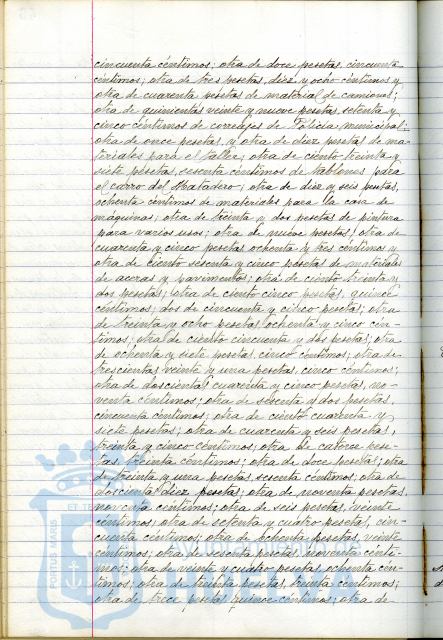 cincuenta céntimos; otra de doce pesetas, cincuenta
céntimos; otra de tres pesetas, diez y ocho céntimos y
otra de cuarenta pesetas de material de camiones;
otra de quinientas veinte y nueve pesetas, setenta y
cinco céntimos de correajes de Policia municipal;
otra de once pesetas, y otra de diez pesetas de ma-
teriales para el taller; otra de ciento treinta y
siete pesetas, sesenta céntimos de tablones para
el carro del Matadero; otra de diez y seis pesetas,
ochenta céntimos de materiales para la casa de
máquinas; otra de treinta y dos pesetas de pintura
para varios usos; otra de nueve pesetas; otra de
cuarenta y cinco pesetas ochenta y tres céntimos y
otra de ciento sesenta y cinco pesetas de materiales
de aceras y pavimentos; otra de ciento treinta y
dos pesetas; otra de ciento cinco pesetas, quince
céntimos; dos de cincuenta y cinco pesetas; otra
de treinta y ocho pesetas ochenta y cinco cén-
timos; otra de ciento cincuenta y dos pesetas; otra
de ochenta y siete pesetas, cinco céntimos; otra de
trescientas veinte y una pesetas, cinco céntimos;
otra de doscientas cuarenta y cinco pesetas, no-
venta céntimos; otra de sesenta y dos pesetas,
cincuenta céntimos; otra de ciento cuarenta y
siete pesetas; otra de cuarenta y seis pesetas,
treinta y cinco céntimos; otra de catorce pese-
tas, treinta céntimos; otra de doce pesetas; otra
de treinta y una pesetas, sesenta céntimos; otra de
doscientas diez pesetas; otra de noventa pesetas,
noventa céntimos; otra de seis pesetas, veinte
céntimos; otra de setenta y cuatro pesetas, cin-
cuenta céntimos; otra de ochenta pesetas, veinte
céntimos; otra de sesenta pesetas, noventa cénti-
mos; otra de veinte y cuatro pesetas, ochenta cén-
timos; otra de treinta pesetas, treinta céntimos;
otra de trece pesetas, quince céntimos; otra de
PORTUS MARIS
ET TE